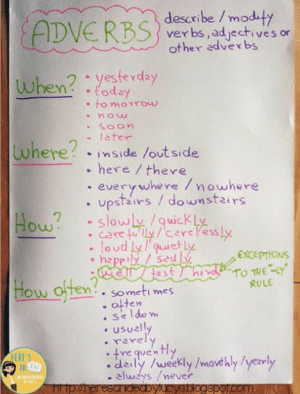 ADVERBS
describe / modify
verbs, adjectives or
other adverbs
When?
• yesterday
• today
• tomorrow
• now
• soon
• later
Where?
• inside / outside
• here / there
• everywhere / nowhere
• upstairs / downstairs
How?
• slowly / quickly
• carefully / carelessly
• loudly / quietly
• happily / sadly
• well / fast / hard
EXCEPTIONS
TO THE "-LY"
RULE
How often?
• sometimes
• often
• seldom
• usually
• rarely
• frequently
• daily / weekly / monthly / yearly
• always / never